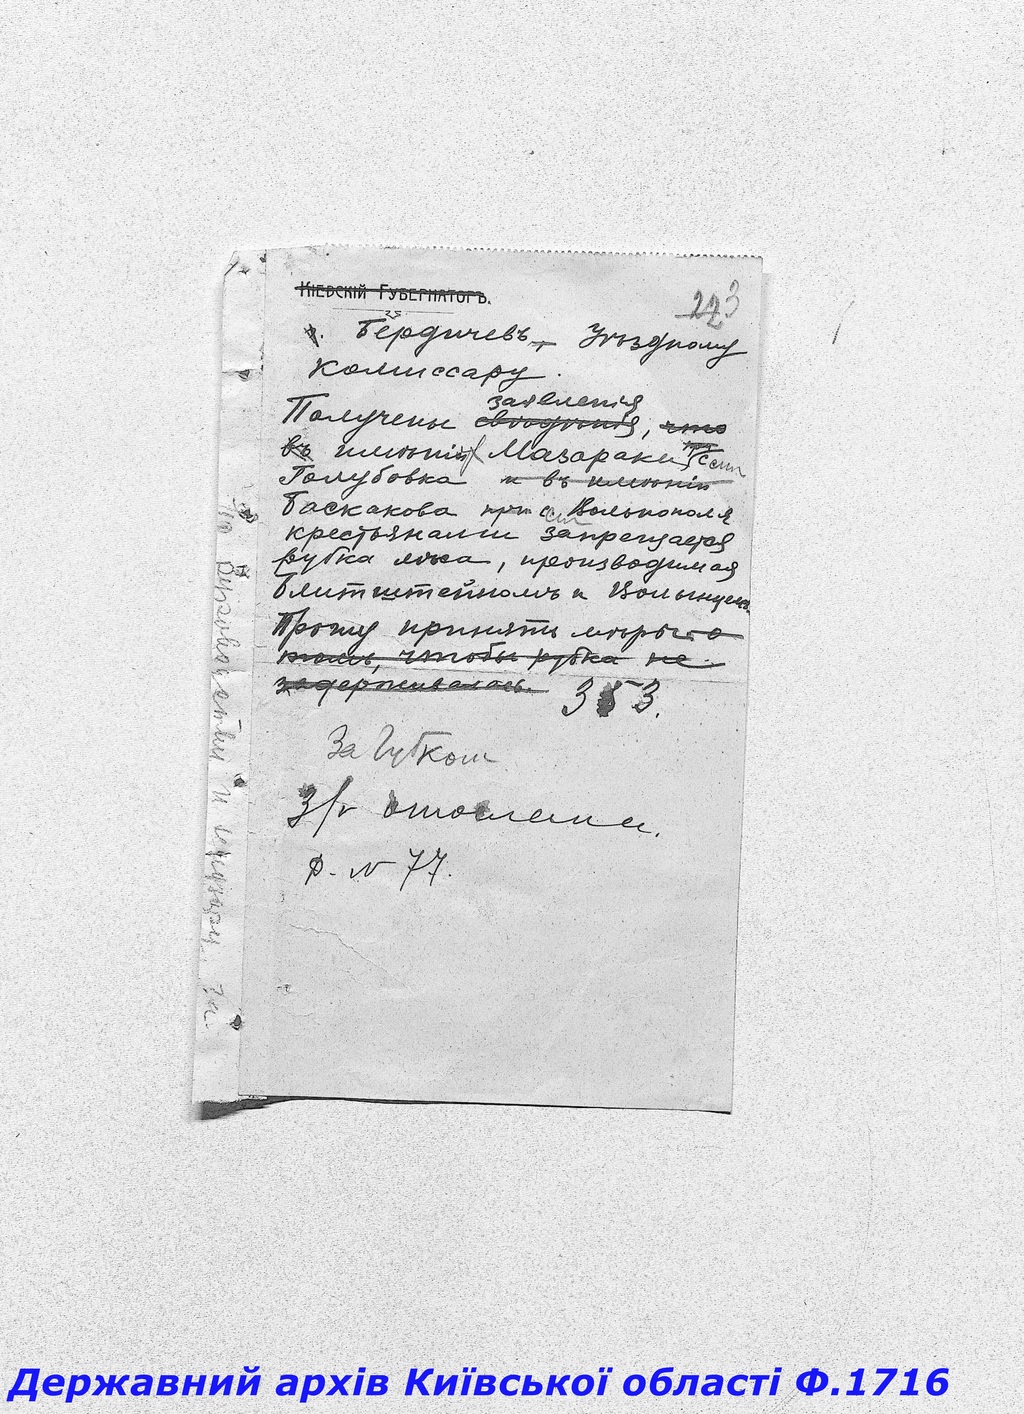 Кіевскій Губернаторъ.
223
г. Бердичевъ, Уѣздному
Комиссару.
заявленія
Получены свѣдѣнія, что
въ имѣніи Мазараки при с.
Голубовка и въ имѣніи
Баскакова при с. Вольнополя
крестьянами запрещается
рубка лѣса, производимая
Блитштейномъ и
Прошу принять мѣры
чтобы рубка не
задерживалась. 353.
За Губком
3/V
р. N 77.
Державний архів Київської області Ф.1716